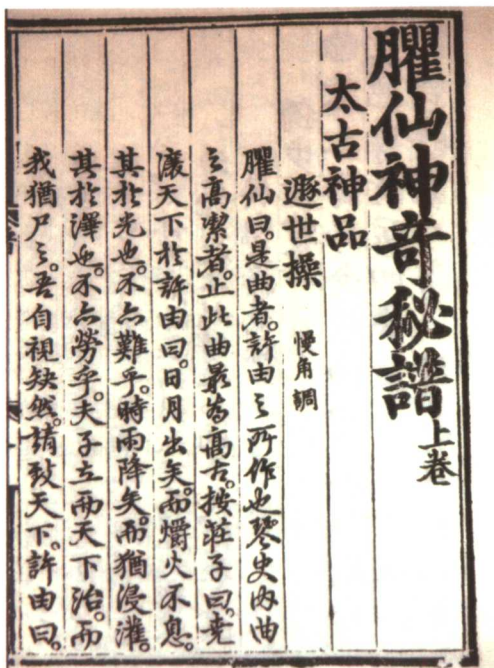 臞仙神奇秘譜上卷
太古神品
遯世操 慢角調
臞仙曰。是曲者。許由之所作也琴史內曲
之高潔者。止此曲最為高古。按莊子曰。堯
讓天下於許由曰。日月出矣。而爝火不息。
其於光也。不亦難乎。時雨降矣。而猶浸灌。
其於澤也。不亦勞乎。夫子立而天下治。而
我猶尸之。吾自視缺然。請致天下。許由曰。